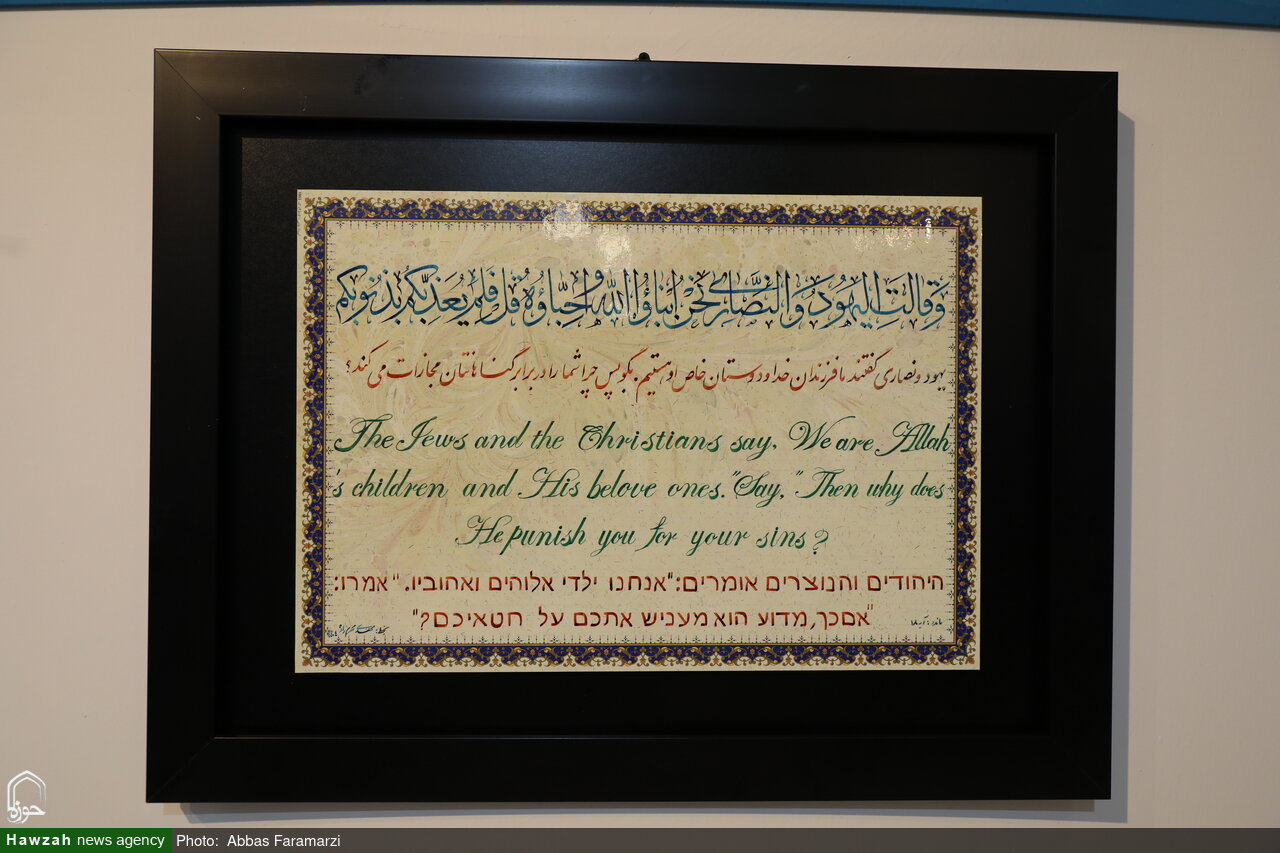 وَقَالَتِ الیَهُودُ وَالنَّصَارَی نَحْنُ اَبْنَاؤُا اللّٰهِ وَاَحِبَّاؤُهُ قُلْ فَلِمَ یُعَذِّبُکُم بِذُنُوبِکُم
یهود و نصاری گفتند ما فرزندان خدا و دوستان خاص او هستیم. بگو پس چرا شما را در برابر گناهانتان مجازات می کند؟
The Jews and the Christians say, We are Allah
's children and His belove ones."Say," Then why does
He punish you for your sins?
היהודים והנוצרים אומרים:"אנחנו ילדי אלוהים ואהוביו. "אמרו:
"אםכך,מדוע הוא מעניש אתכם על חטאיכם?"
مائده: آیه ۱۸
حوزه
Hawzah news agency Photo: Abbas Faramarzi